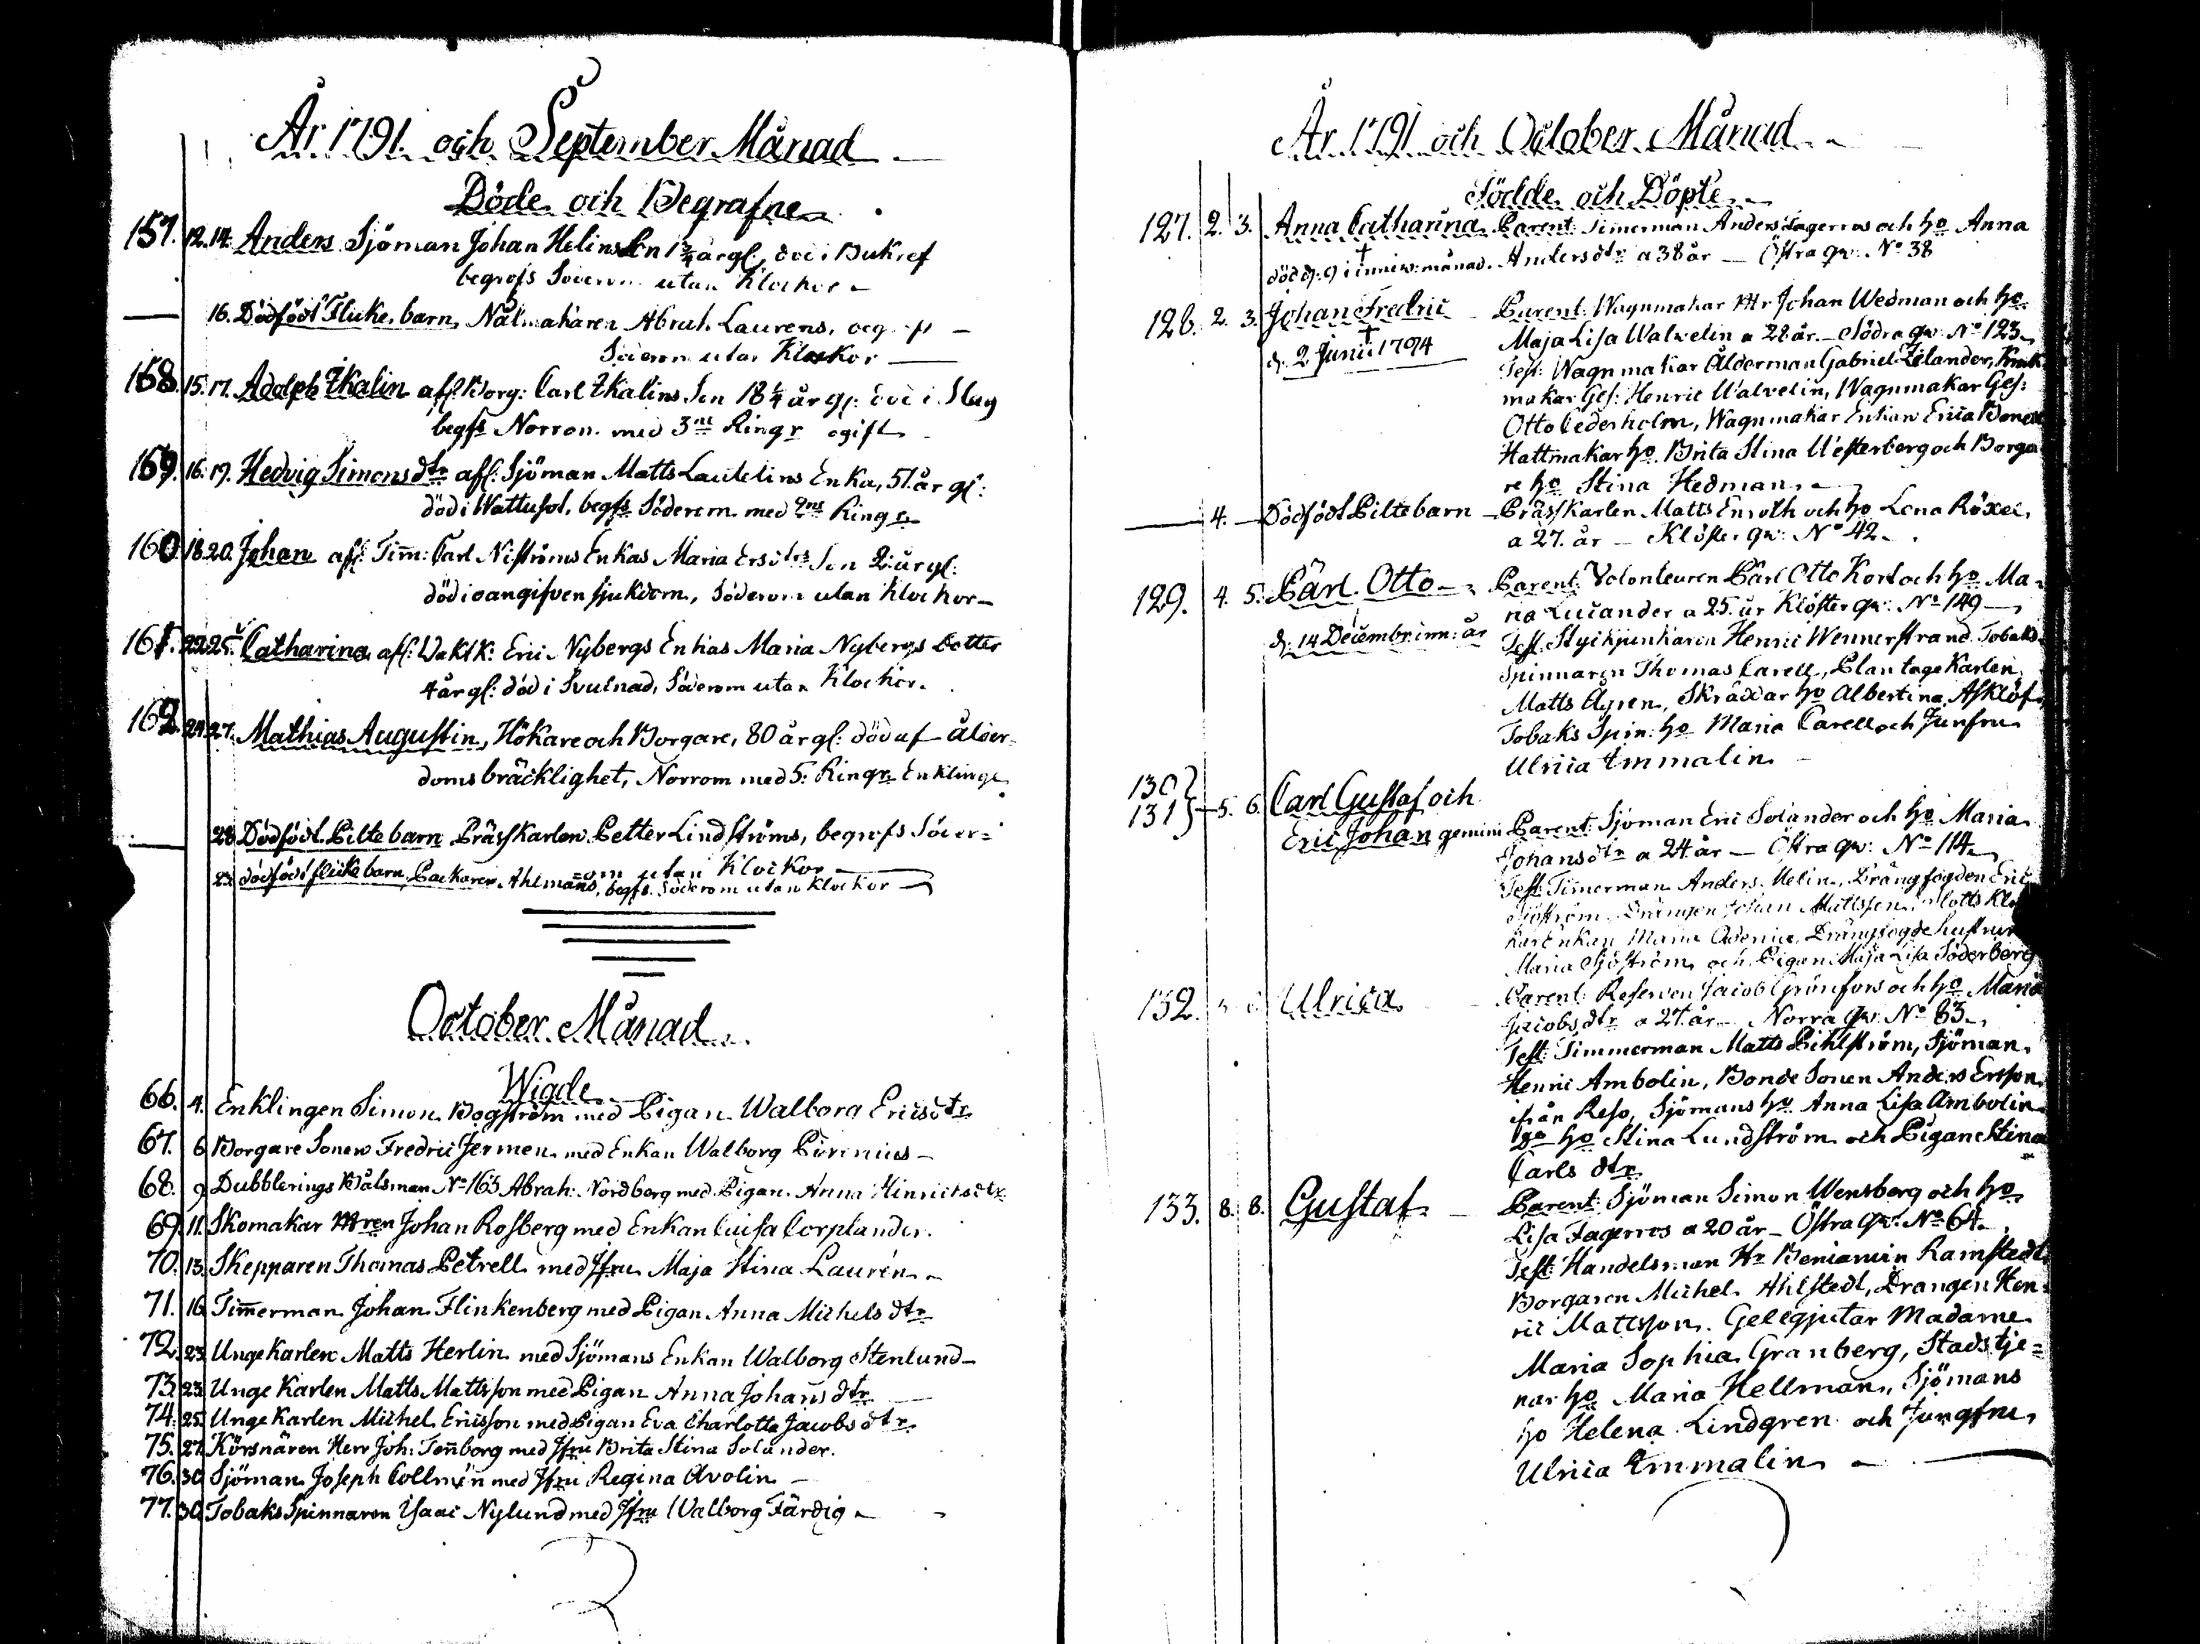 År 1791. och September Månad
Döde och Begrafne
157. 12. 14. Anders Sjöman Johan Helins Son 1 3/4 år gl:, död i Bukref
begrofs Söderom utan Klockor
16. Dödfödt Flicke barn, Nålmakaren Abrah. Laurens,
Söderom utan Klockor
158. 15. 17. Adolph Zkalin afl. Borg: Carl Zkalins Son 18 1/4 år gl: död i Slag
begfs Norrom med 3ne Ringr ogift
159. 16. 19. Hedvig Simons dtr afl: Sjöman Matts Lautelins Enka, 51 år gl:
död i Wattusot, begfs Söderom med 2ne Ringr
160. 18. 20. Johan afl: Tim̄: Carl Niströms Enkas Maria Ersdtrs Son 2: år gl:
död i oangifven sjukdom, Söderom utan Klockor
161. 22. 25. Catharina afl: Wakt K: Eric Nybergs Enkas Maria Nybergs Dotter
4 år gl: död i Svulnad, Söderom utan Klockor.
162. 24. 27. Mathias Augustin, Hökare och Borgare, 80 år gl: död af ålder
doms bräcklighet, Norrom med 5: Ringr Enkling
28. Dödfödt Pilte barn Bräss Karlen Petter Lindströms, begrofs Söder=
=om utan Klockor
23. dödfödt flicke barn, Packaren Ahlmans, begfs. Söderom utan klockor
October Månad
Wigde
66. 4. Enklingen Simon Bogström med Pigan Walborg Ericsdtr
67. 6 Borgare Sonen Fredric Jermen med Enkan Walborg Pirenius
68. 9 Dubblerings Båtsman No 163 Abrah: Nordberg med Pigan Anna Hinricsdtr
69. 11. Skomakar Mren Johan Rosberg med Enkan Luisa Corplander.
70. 13. Skepparen Thomas Petrell med Jfru Maja Stina Laurén
71. 16 Tim̄erman Johan Flinkenberg med Pigan Anna Michels dtr
72. 23. Unge Karlen Matts Herlin med Sjömans Enkan Walborg Stenlund
73. 23. Unge Karlen Matts Mattsson med Pigan Anna Johans dtr
74. 25. Unge Karlen Michel Ericsson med Pigan Eva Charlotta Jacobs dtr
75. 27. Körsnären Herr Joh: Ten̄borg med Jfru Brita Stina Solander.
76. 30. Sjöman Joseph Collmén med Jfru Regina Avolin
77. 30. Tobaks Spinnaren Isaac Nylund med Jfru Walborg Färdig
År 1791 och October Månad
Födde och Döpte
127. 2. 3. Anna Catharina Parent: Timerman Anders Fagerros och ho Anna
död d. 9 i innew: månad. Anders dtr a 38 år — Östra qv: No 38
128. 2. 3. Johan Fredric Parent: Wagnmakar Mr Johan Wedman och ho
d. 2 Junii 1794 Maja Lisa Walvelin a 28 år. Södra qv: No 123
Test: Wagnmakar Ålderman Gabriel Zelander, Kruk
makar Ges: Henric Walvelin, Wagnmakar Ges:
Otto Cederholm, Wagnmakar Enkan Erica
Hattmakar ho Brita Stina Westerberg och Borga
re ho Stina Hedman.
4. Dödfödt Pilte barn Bräss Karlen Matts Enroth och ho Lena Röxel
a 27. år — Klöster qv: No 42.
129. 4. 5. Carl Otto Parent: Volonteuren Carl Otto Kort och ho Ma
ria Lucander a 25. år Klöster qv: No 149
d. 14 Decembr. inn: år Test: Styckjunkaren Henric Wennerstrand Tobaks
Spinnaren Thomas Carell, Plantage Karlen
Matts Agren, Skräddar ho Albertina Asklöf
Tobaks Spin: ho Maria Carell och Junfru
Ulrica Emmalin
130
131 5. 6. Carl Gustaf och
Eric Johan gemini Parent: Sjöman Eric Solander och ho Maria
Johansdtr a 24 år — Östra qv: No 114
Test: Timerman Anders Melin, Drängfogden Eric
Sjöström Drängen Johan Mattsson, Slotts
Enkan Maria Drängfogde hustrun
Maria Sjöström och Pigan Maja Lisa Söderberg
132. Ulrica Parent: Reserven Jacob Grönfors och ho Maria
Jacobs dtr a 27. år — Norra qv: No 63
Test: Timmerman Matts Pihlström, Sjöman
Henric Ambolin, Bonde Sonen Anders Ersson
från Reso, Sjömans ho Anna Lisa Ambolin
do ho Stina Lundström och Pigan Stina
Carls dtr
133. 8. 8. Gustaf Parent: Sjöman Simon Wensberg och ho
Lisa Fagerros a 20 år — Östra qv: No 64
Test: Handelsman Hr Beniamin Ramstedt
Borgaren Michel Ahlstedt, Drangen Hen
ric Mattsson. Gelegjutar Madame
Maria Sophia Granberg, Stadstje=
nar ho Maria Hellman, Sjömans
ho Helena Lindgren och Jungfru
Ulrica Emmalin